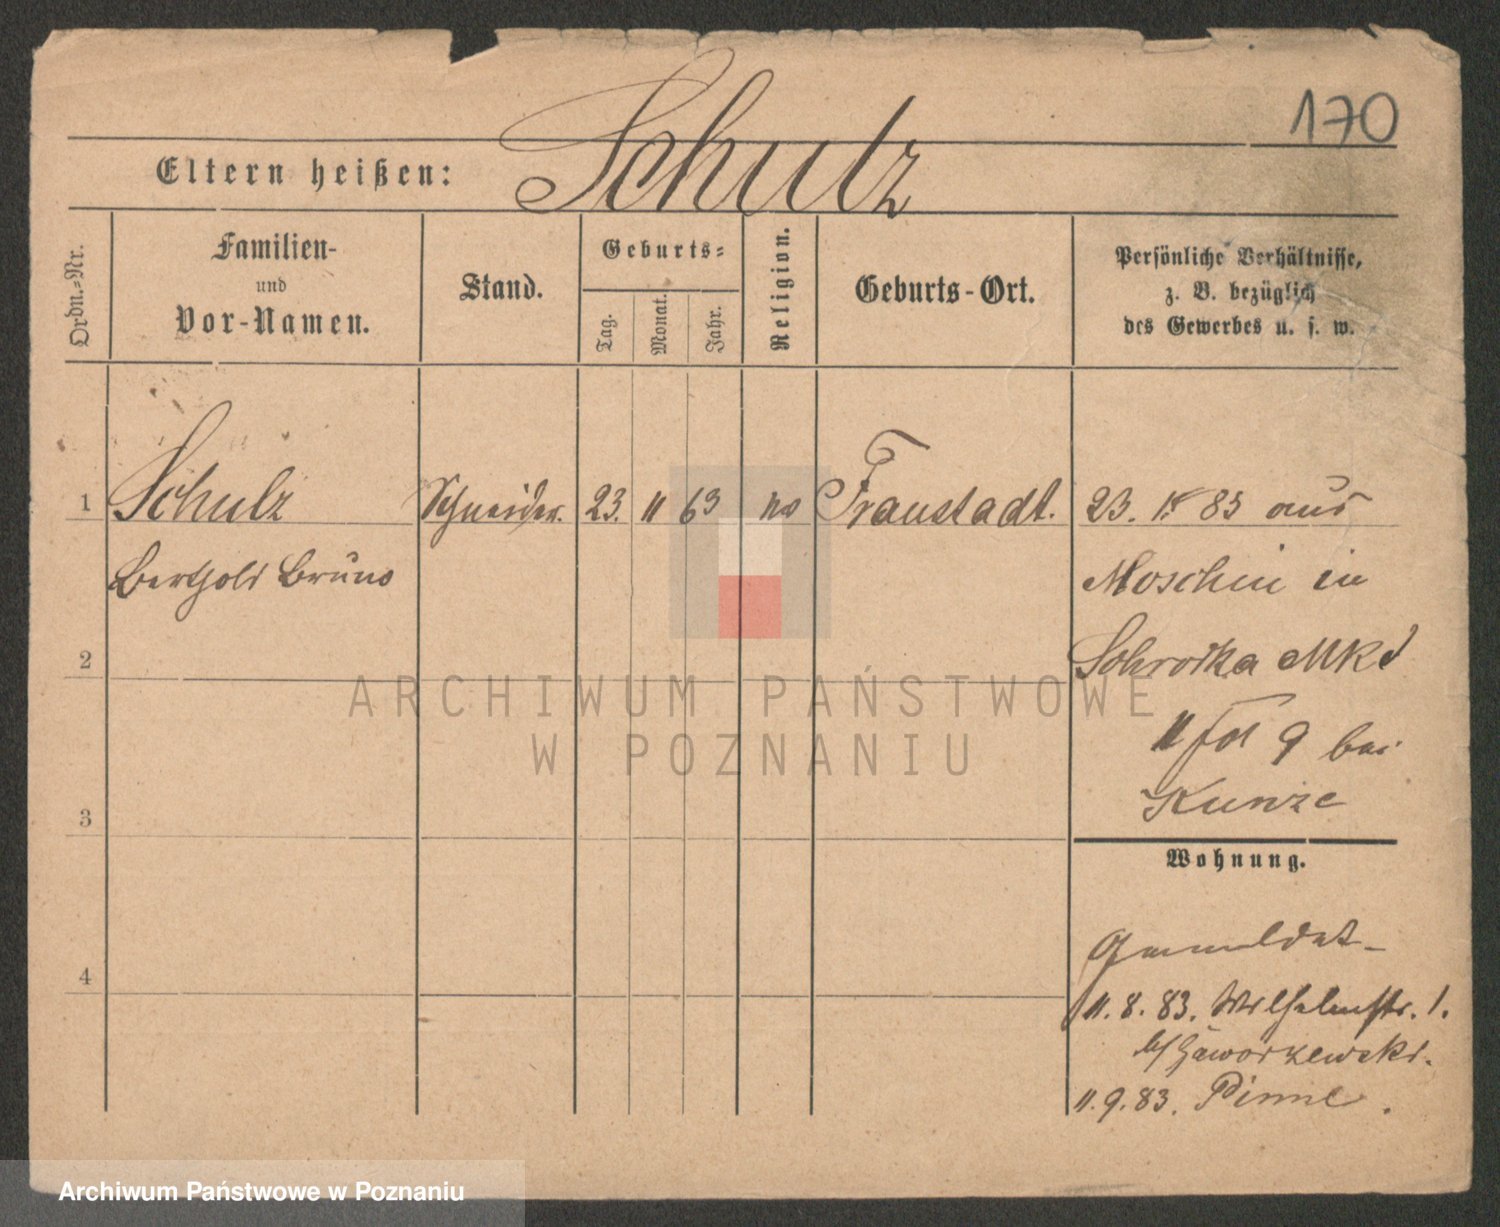 170
Eltern heißen: Schulz
Ordn.-Nr.
Familien-
und
Vor-Namen.
Stand.
Geburts-
Tag.
Monat.
Jahr.
Religion.
Geburts-Ort.
Persönliche Verhältnisse,
z. B. bezüglich
des Gewerbes u. s. w.
1 Schulz Schneider. 23. 11 63 Fraustadt. 23. 83 aus
Berthold Bruno
Moschin in
2
Schrodka
ARCHIWUM PAŃSTWOWE
W POZNANIU
11 fol 9 bei
Kunze
3
Wohnung.
Gemeldet
4
11. 8. 83. Wilhelmstr. 1.
b/ Gaworzewski.
11. 9. 83. Pinne.
Archiwum Państwowe w Poznaniu